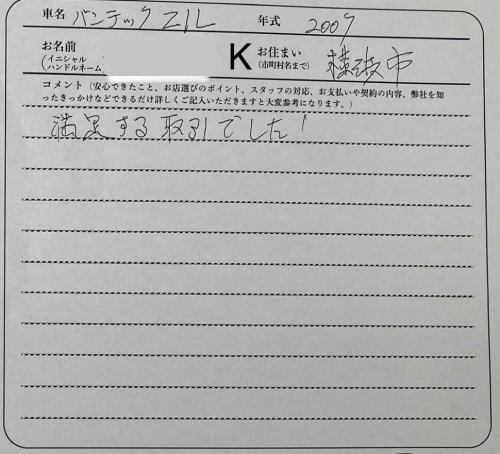 車名 バンテック ZIL 年式 2007
お名前 K お住まい
(イニシャル ハンドルネーム) (市町村名まで) 市
コメント(安心できたこと、お店選びのポイント、スタッフの対応、お支払いや契約の内容、弊社を知
ったきっかけなどできるだけ詳しくご記入いただきますと大変参考になります。)
満足する取引でした!